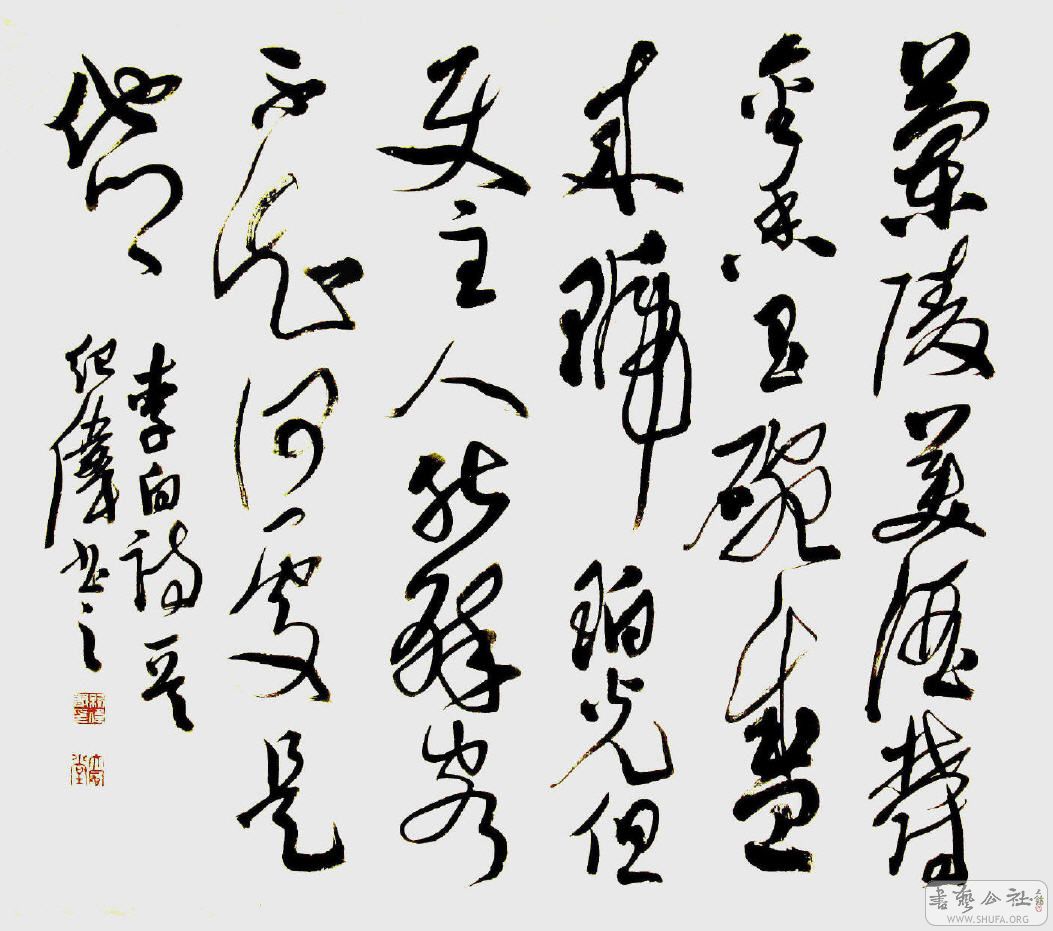 蘭陵美酒鬱
金香玉碗盛
来琥珀光但
使主人能醉客
不知何處是
他鄉
李白詩一首
紀偉書之
書藝公社
WWW.SHUFA.ORG